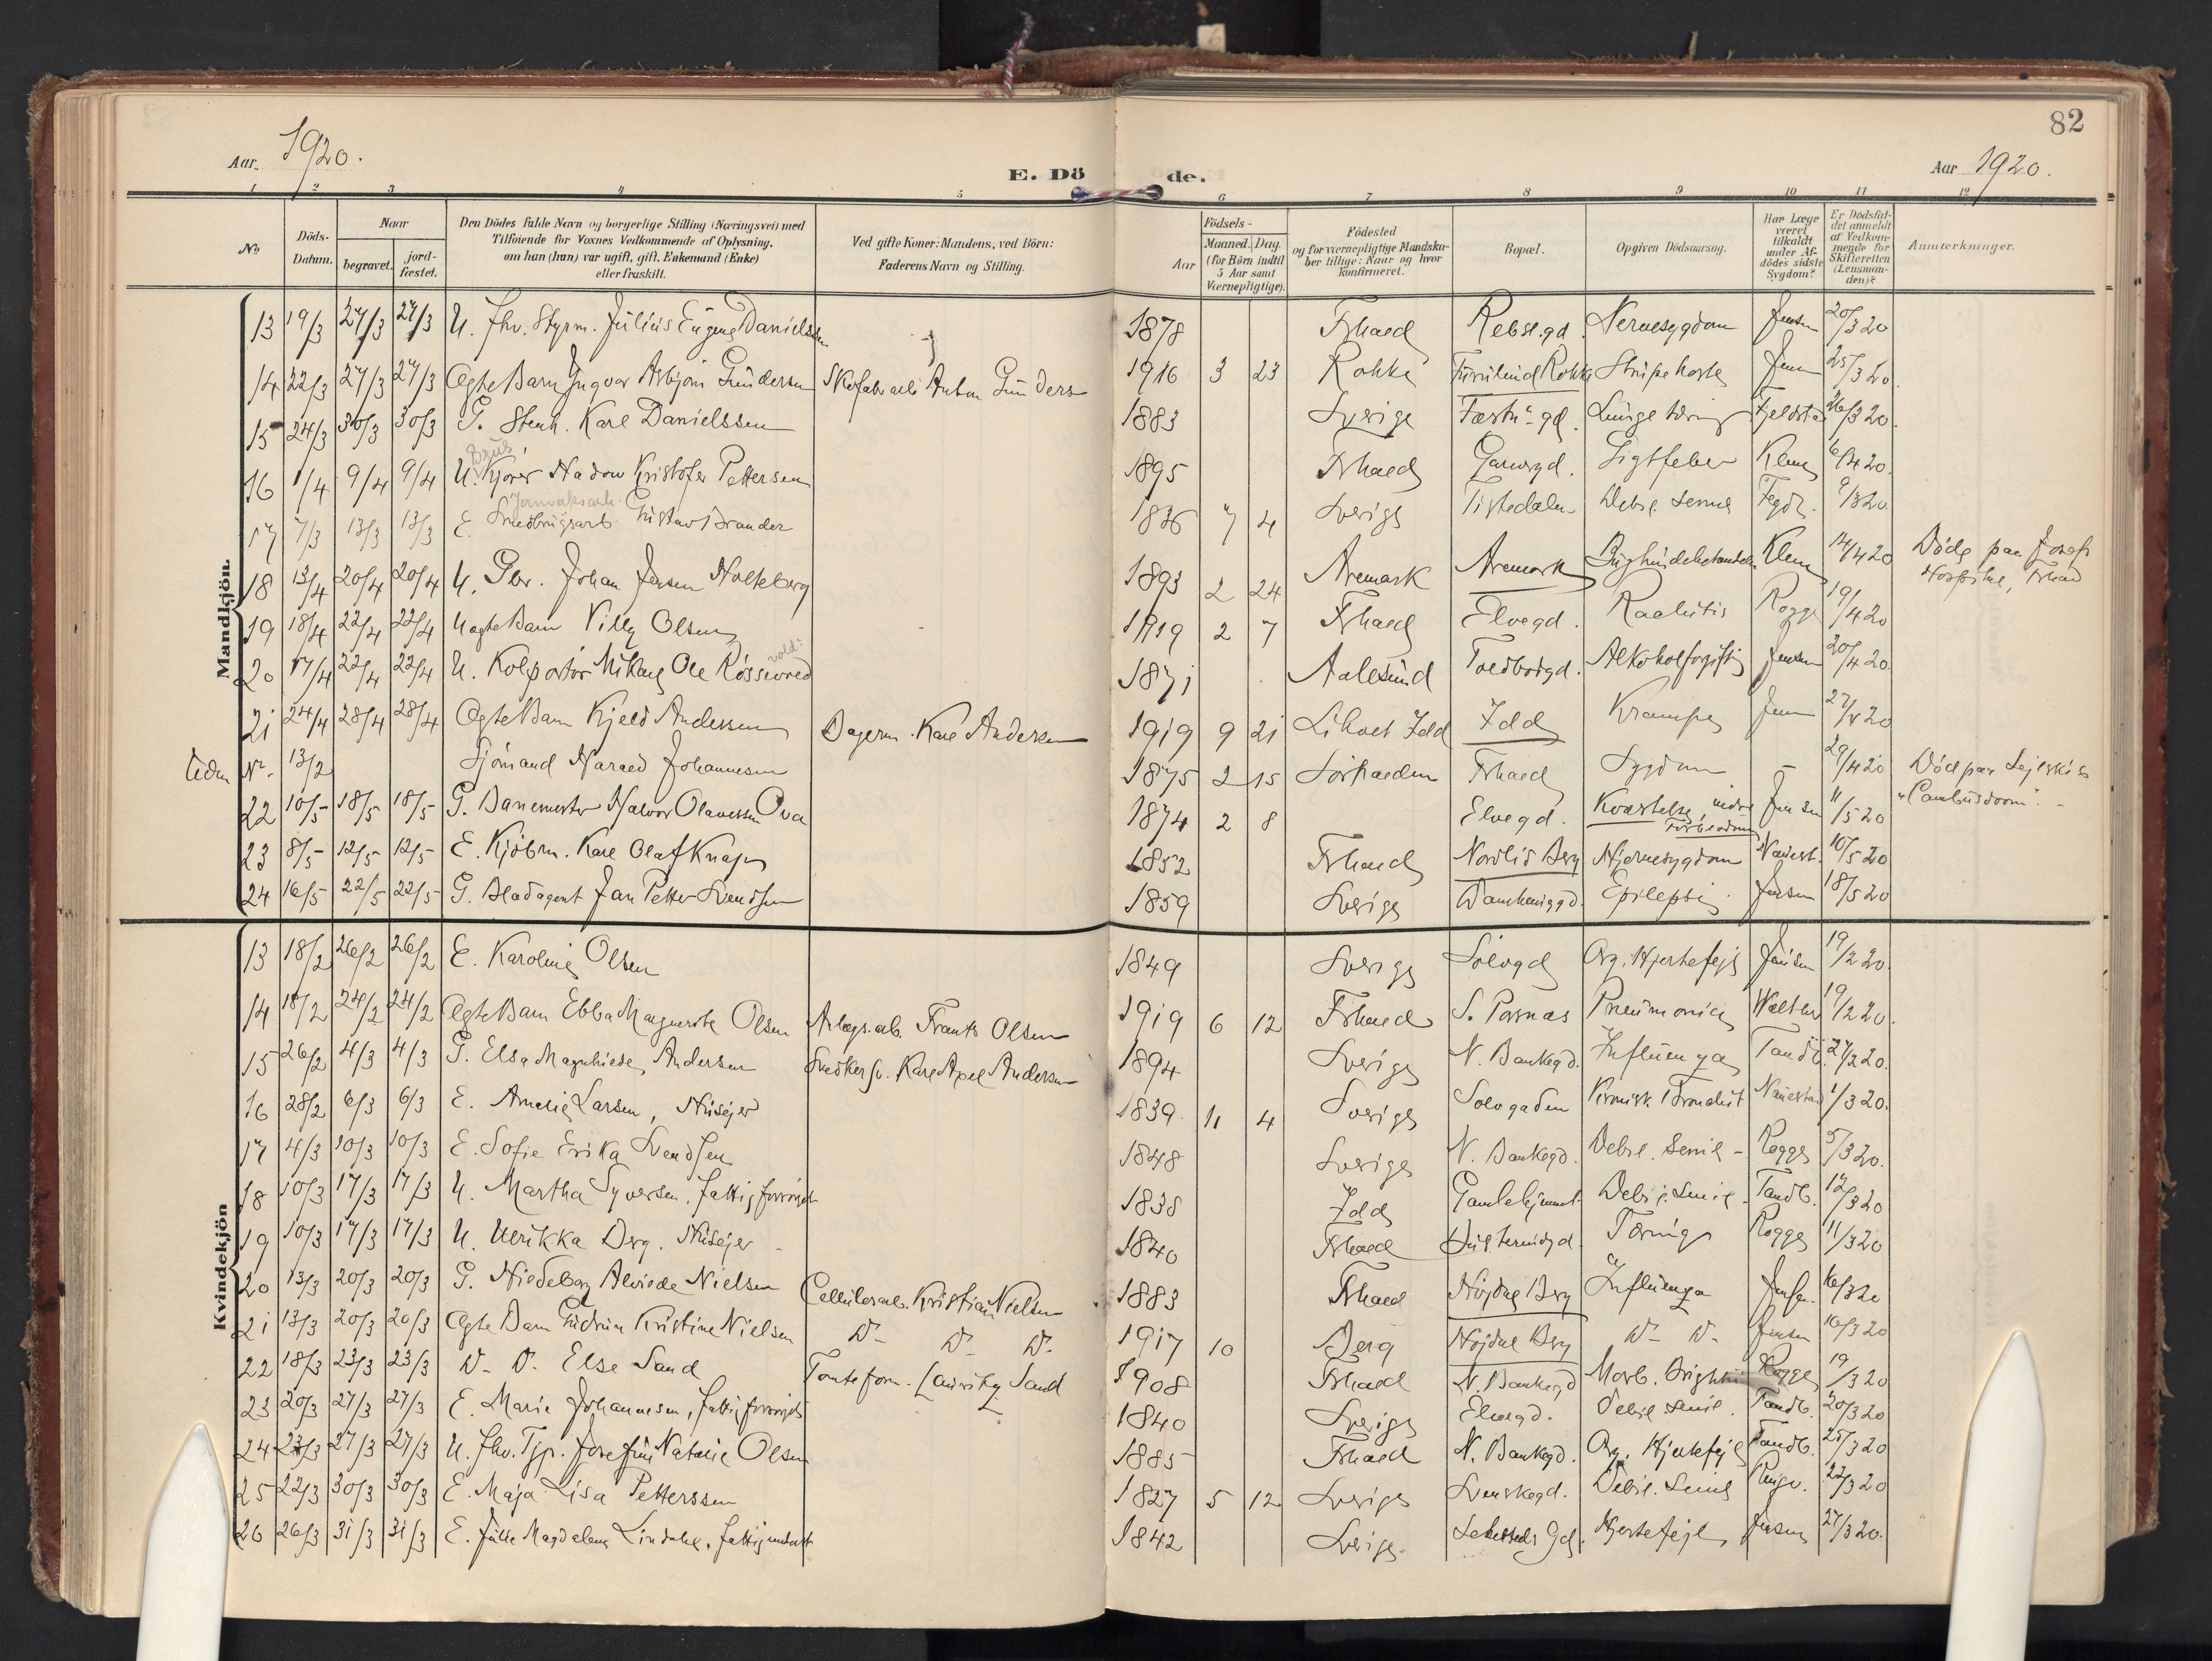 82
Aar. 1920.
E. Dö de.
Aar 1920.
1 2 3 4 5 6 7 8 9 10 11 12
No.
Döds-Datum.
Naar
begravet.
jord-fæstet.
Den Dödes fulde Navn og borgerlige Stilling (Næringsvei) med
Tilföiende for Voxnes Vedkommende af Oplysning,
om han (hun) var ugift, gift, Enkemand (Enke)
eller fraskilt.
Ved gifte Koner: Mandens, ved Börn:
Faderens Navn og Stilling.
Födsels-
Aar
Maaned. Dag.
(for Börn indtil
5 Aar samt
Værnepligtige).
Födested
og for værnepligtige Mandskaber tillige: Naar og hvor
konfirmeret.
Bopæl.
Opgiven Dödsaarsag.
Har Læge
været
tilkaldt
under Afdödes sidste
Sygdom?
Er Dödsfaldet anmeldt
af Vedkommende for
Skifteretten
(Lensmanden)?
Anmærkninger.
Mandkjön.
13 19/3 27/3 27/3 U. fhv. Styrm. Julius Eugen Danielssen 1878 Frhald Rebsl.gd. Nervesygdom Jensen 20/3 20
14 22/3 27/3 27/3 Ægte Barn Yngvar Asbjörn Gundersen Skofabr.arb. Anton Gunders 1916 3 23 Rokke Furulund Rokke Strubehoste Jens 25/3 20.
15 24/3 30/3 30/3 G. Stenh. Karl Danielssen 1883 Sverige Fæstn.gd. Lungetæring Fjeldstad 26/3 20.
16 1/4 9/4 9/4 U. Kjörer Hadon Kristofer Pettersen 1895 Frhald Garverg.d. Gigtfeber Klem 6/4 20.
17 7/3 13/3 13/3 E. Smedbrugsarb. Gustav Brander 1836 7 4 Sverige Tistedalen Debil. senil 9/3 20.
Jernverksarb.
18 13/4 20/4 20/4 U. Gbr. Johan Jensen Holteberg 1893 2 24 Aremark Aremark Klem 14/4 20 Döde paa Josefs
Hospital, Frhald
19 18/4 22/4 22/4 Uægte Barn Villy Olsen 1919 2 7 Frhald Elvegd. Rachitis Rogge 19/4 20
20 17/4 22/4 22/4 U. Kolportör Mikael Ole Rössevold 1871 Aalesund Toldbodgd. Alkoholforgiftn. Jensen 20/4 20.
vold:
21 24/4 28/4 28/4 Ægte Barn Kjeld Andersen Bagerm. Karl Andersen 1919 9 21 Lihult Idd Idd Krampe Jens 27/4 20
Uden Nr. 13/2 Sjömand Harald Johannesen 1875 2 15 Sörhalden Frhald Sygdom – 29/4 20 Död paa Sejlskib
"Cambusdoon". –
22 10/5 18/5 18/5 G. Banemester Halvor Olavessen Ova 1874 2 8 Elvegd. Kvæstelse, indre Forblödning Jensen 11/5 20
23 8/5 12/5 12/5 E. Kjöbm. Karl Olaf Knap 1852 Frhald Nordlis Berg Hjernesygdom Nauest. 10/5 20
24 16/5 22/5 22/5 G. Bladagent Jan Petter Svendsen 1859 Sverige Damhaugd. Epilepsi Jensen 18/5 20
Kvindekjön
13 18/2 26/2 26/2 E. Karoline Olsen 1849 Sverige Sölvgd Org. Hjertefejl Jensen 19/2 20.
14 18/2 24/2 24/2 Ægte Barn Ebba Margverthe Olsen Anlægs.arb. Frants Olsen 1919 6 12 Frhald S. Parnas Pneumonia Walther 19/2 20.
15 26/2 4/3 4/3 G. Elsa Magnhilde Andersen Snedkersv. Karl Axel Andersen 1894 Sverige N. Bankegd. Influenza Tandb. 27/2 20.
16 28/2 6/3 6/3 E. Amelie Larsen, Husejer 1839. 11 4 Sverige Sölvgaden Kronisk Bronchit Nauestad 1/3 20.
17 4/3 10/3 10/3 E. Sofie Erika Svendsen 1848 Sverige N. Bankegd. Debil. senil – Rogge 5/3 20.
18 10/3 17/3 17/3 U. Martha Syversen. fattigforsörget 1838 Idd Gamlehjemmet Debil. Senil Tandb. 12/3 20
19 10/3 17/3 17/3 U. Ulrikka Berg. Husejer 1840 Frhald Tæring Rogge 11/3 20
20 13/3 20/3 20/3 G. Hildeborg Alvilde Nielsen Cellulosearb. Kristian Nielsen 1883 Frhald Höjdal Berg Influenza Jensen 16/3 20
21 13/3 20/3 20/3 Ægte Barn Gudrun Kristine Nielsen D– D– D– 1917 10 Berg Höjdal Berg D– D– Jensen 16/3 20
22 18/3 23/3 23/3 D– D. Else Sand Tomteform. Lauritz Sand 1908 Frhald N. Bankegd Morb. Brightii Rogge 19/3 20
23 20/3 27/3 27/3 E. Marie Johannesen, fattigforsörget 1840 Sverige Elvegd. Debil. senil. Tandb. 20/3 20
24 23/3 27/3 27/3 U. fhv. Tjp. Josefine Natalie Olsen 1885 Frhald N. Bankegd. Org. Hjertefejl Tandb. 25/3 20
25 22/3 30/3 30/3 E. Maja Lisa Petterssen 1827 5 12 Sverige Svenskegd. Debil. Senil 22/3 20
26 26/3 31/3 31/3 E. Julie Magdalena Lindahl, fattigunderst. 1842 Sverige. Hjertefejl Jensen 27/3 20.